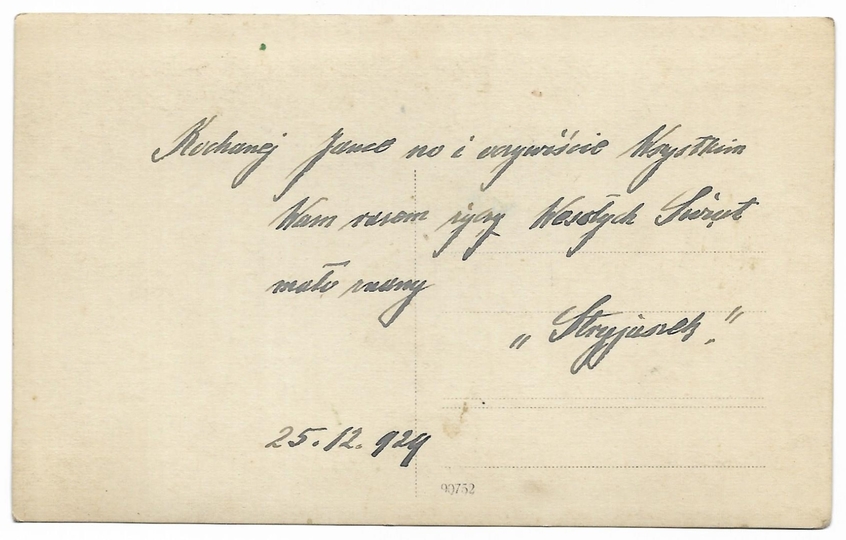 Kochanej Jance no i oczywiście Wszystkim
Wam razem życzy Wesołych Świąt
mało znany
„Stryjaszek."
25.12.929
90752